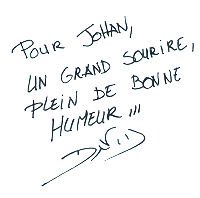 POUR JOHAN,
UN GRAND SOURIRE,
PLEIN DE BONNE
HUMEUR !!!